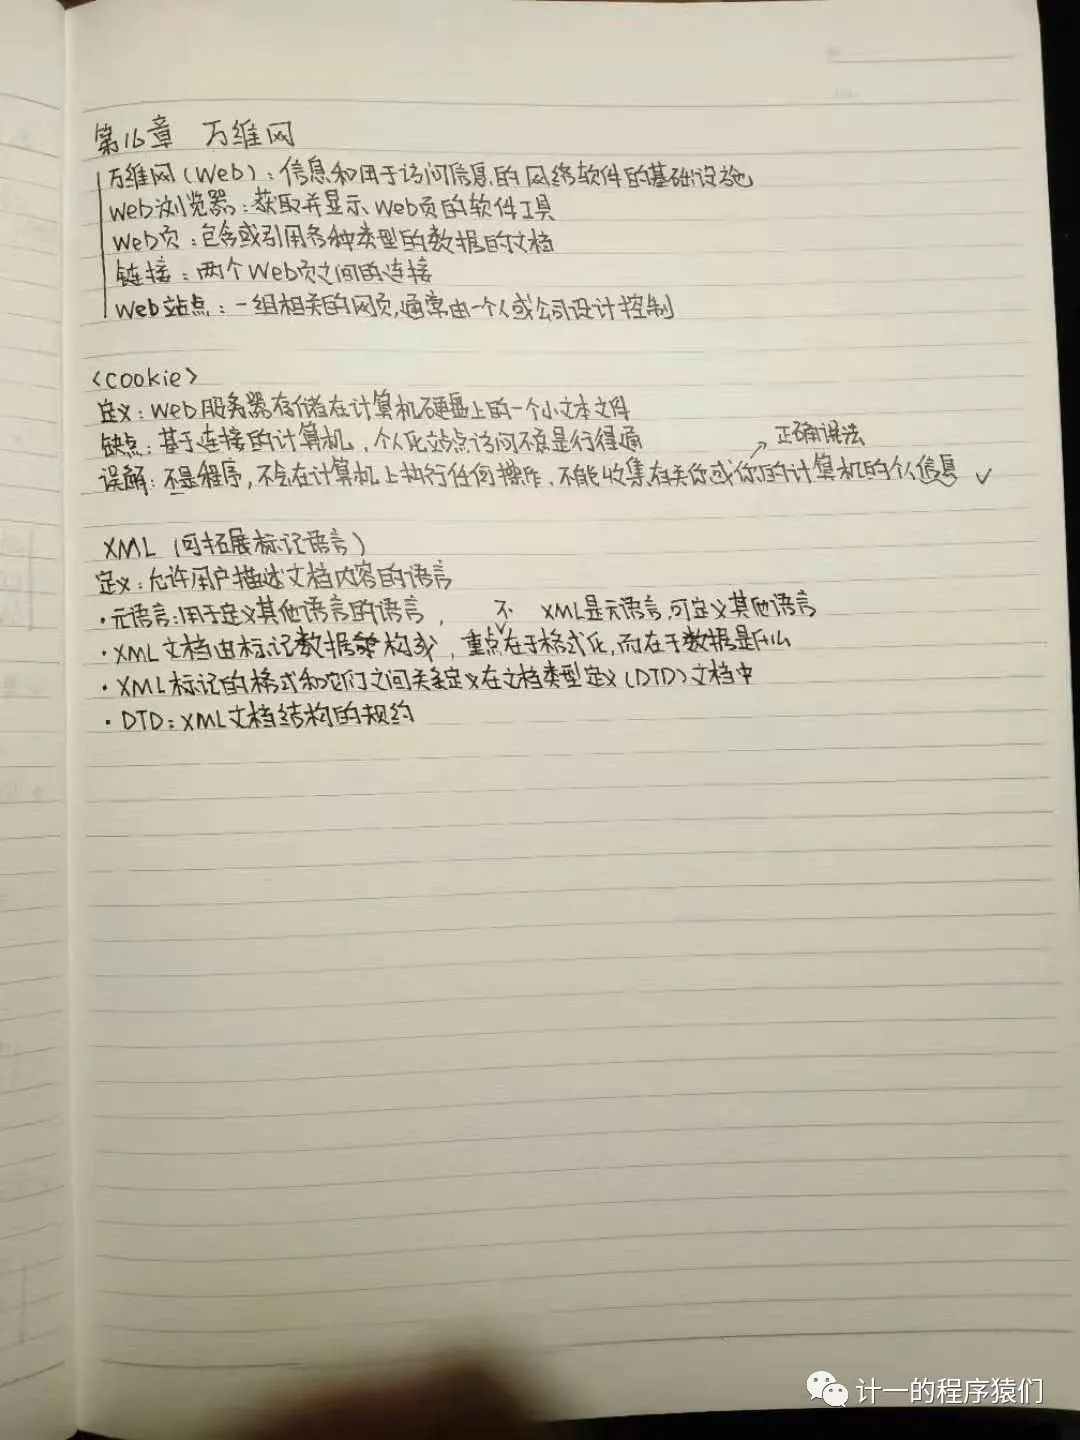 第16章 万维网
万维网(Web):信息和用于访问信息的网络软件的基础设施
Web浏览器:获取并显示Web页的软件工具
Web页:包含或引用各种类型的数据的文档
链接:两个Web页之间的连接
Web站点:一组相关的网页,通常由一个人或公司设计控制
<cookie>
定义:web服务器存储在计算机硬盘上的一个小文本文件
缺点:基于连接的计算机,个人化站点访问不总是行得通
正确说法
误解:不是程序,不会在计算机上执行任何操作、不能收集有关你或你的计算机的个人信息 ✓
XML (可拓展标记语言)
定义:允许用户描述文档内容的语言
·元语言:用于定义其他语言的语言, XML是元语言,可定义其他语言
不
·XML文档由标记数据架构成,重点在于格式化,而在于数据是什么
·XML标记的格式和它们之间关系定义在文档类型定义(DTD)文档中
·DTD:XML文档结构的规约
计一的程序猿们